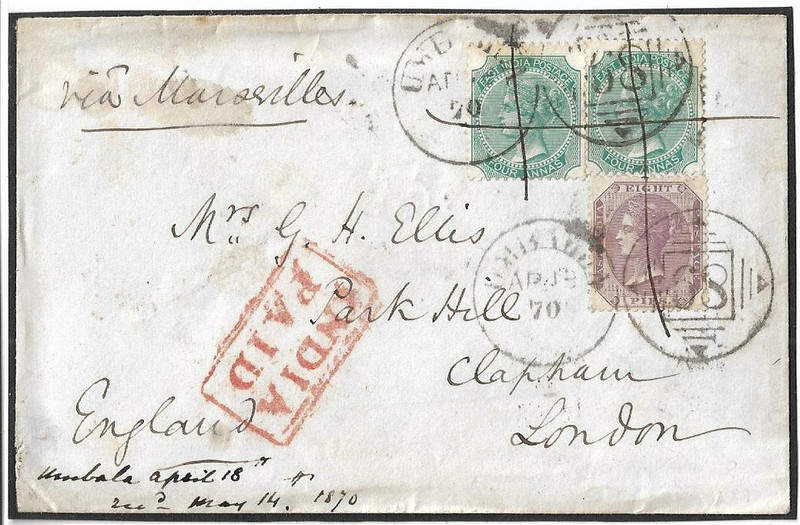 viâ Marseilles
EAST INDIA POSTAGE
FOUR ANNAS
EAST INDIA POSTAGE
FOUR ANNAS
EIGHT
PIES
AP
70
AP 19
70
8
Mrs G. H. Ellis
Park Hill
Clapham
London
England
INDIA
PAID
Umbala April 18th
recd. May 14. 1870